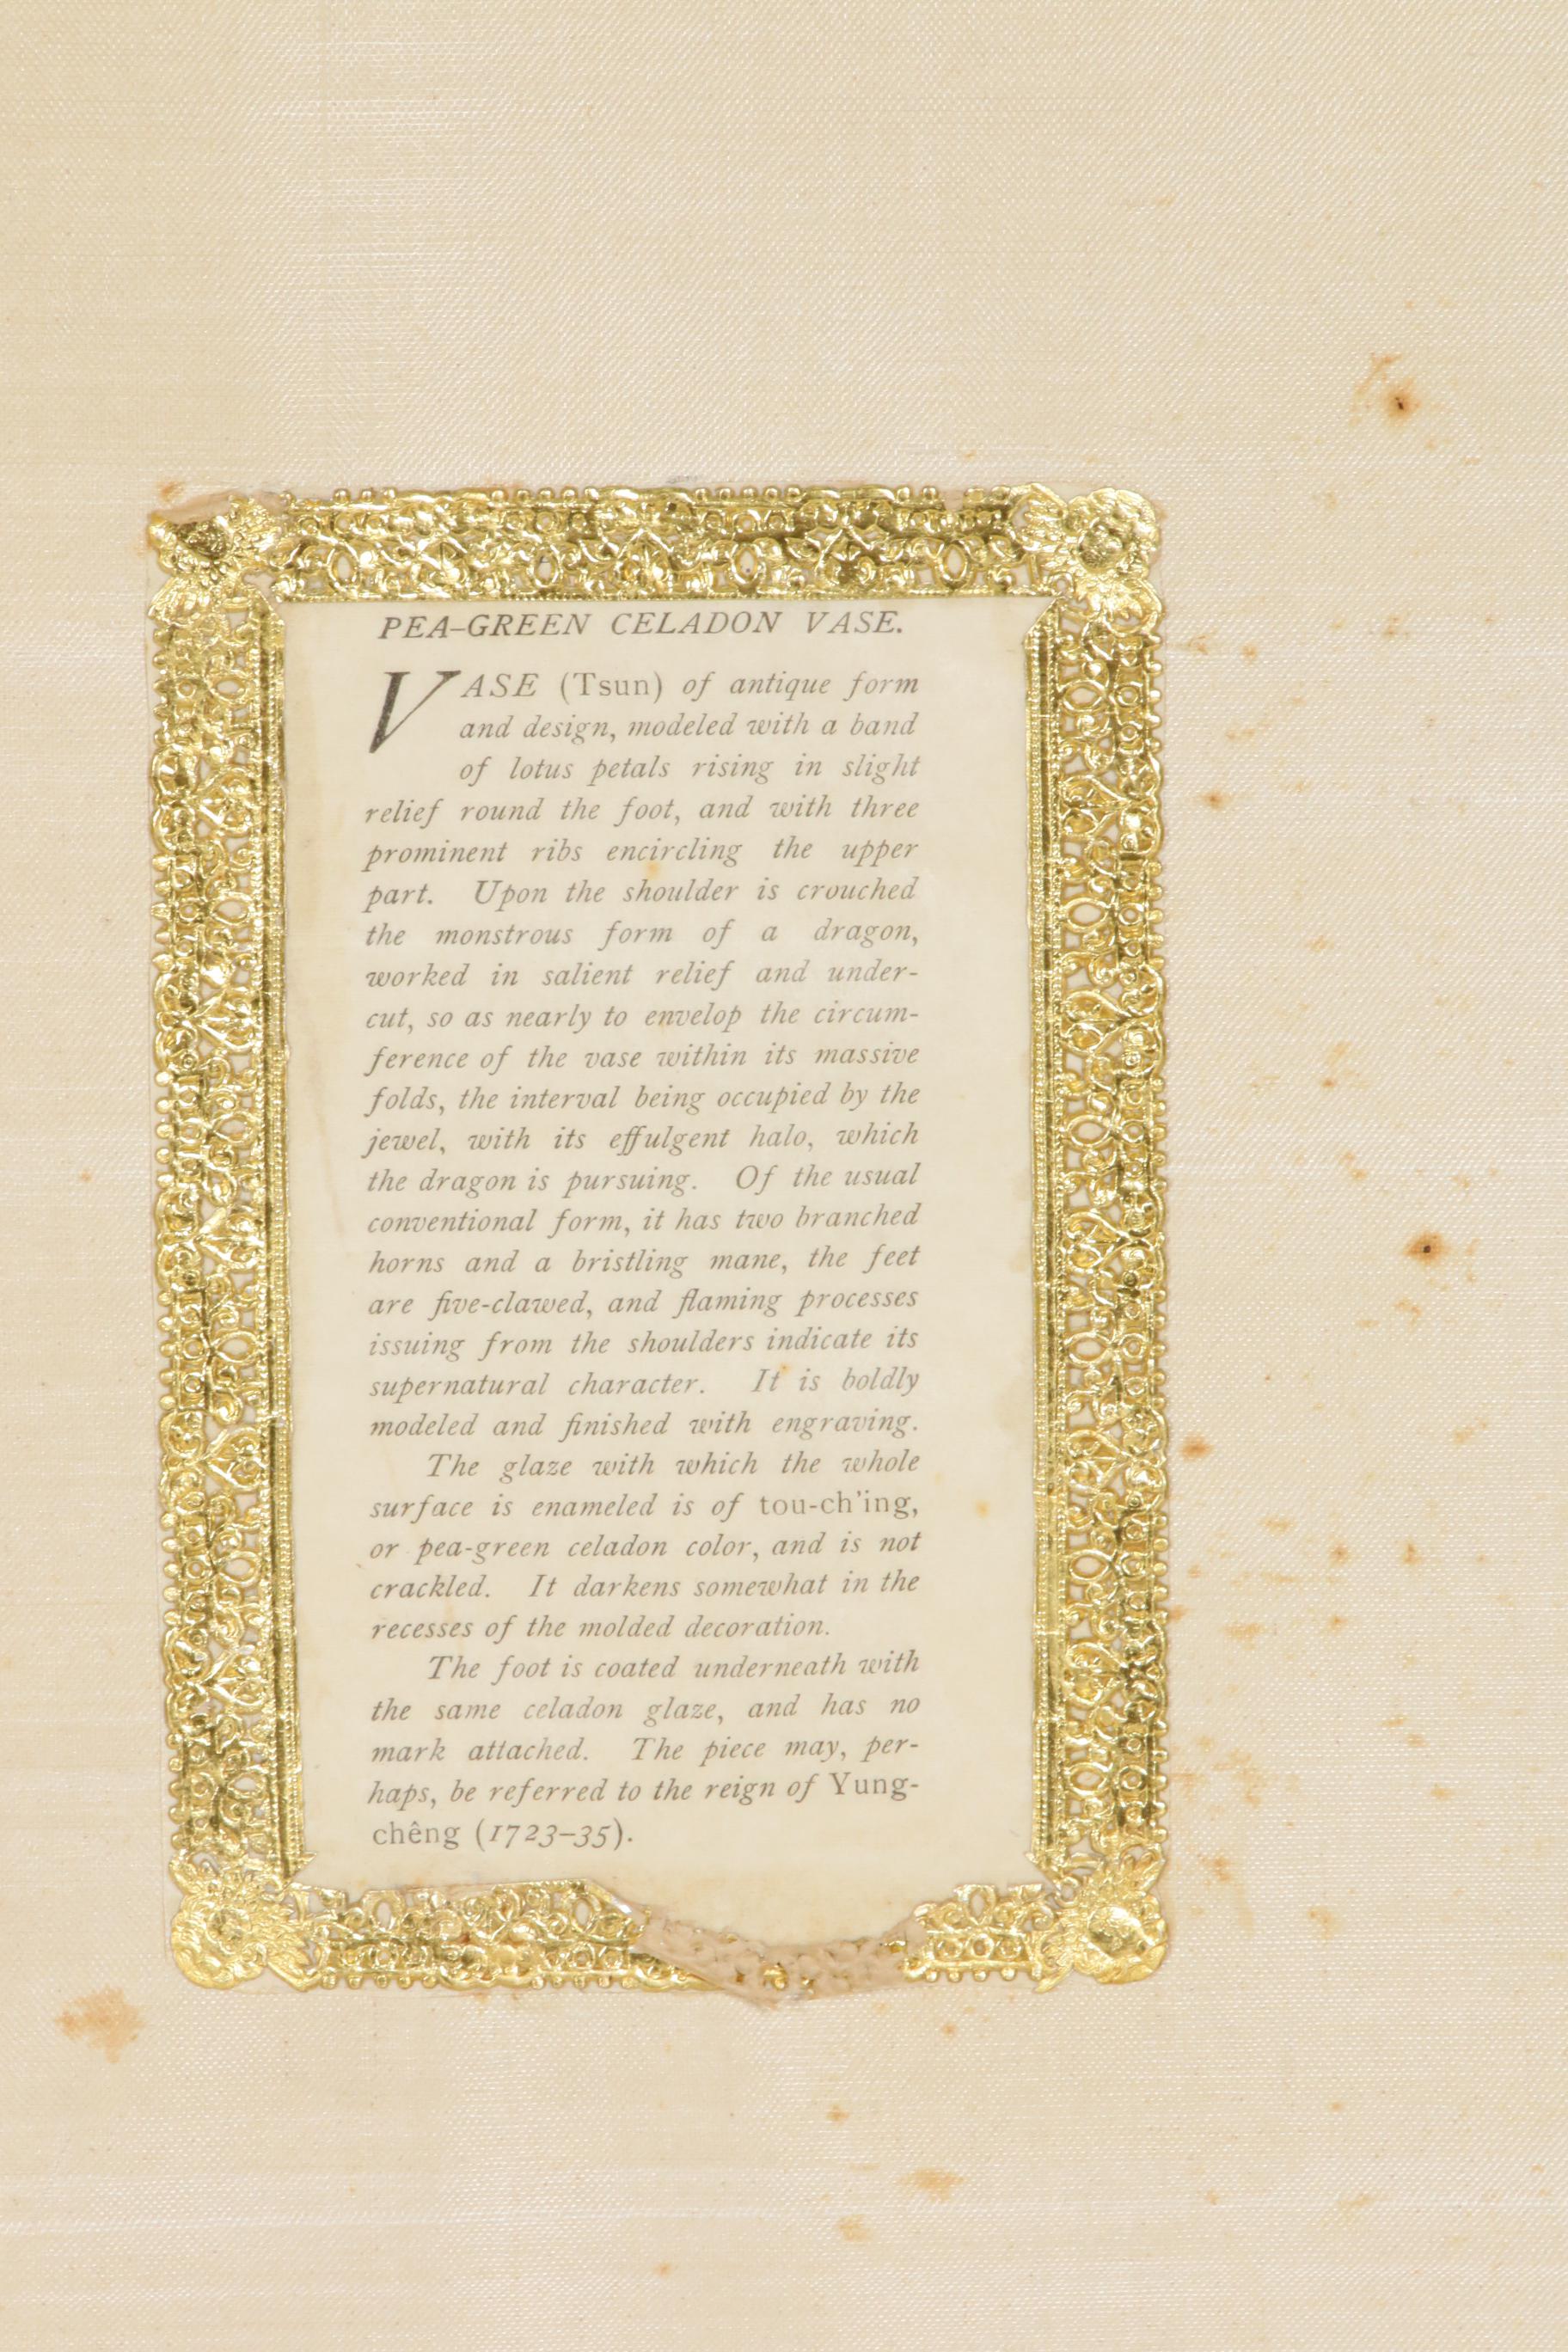 PEA-GREEN CELADON VASE.
VASE (Tsun) of antique form
and design, modeled with a band
of lotus petals rising in slight
relief round the foot, and with three
prominent ribs encircling the upper
part. Upon the shoulder is crouched
the monstrous form of a dragon,
worked in salient relief and under-
cut, so as nearly to envelop the circum-
ference of the vase within its massive
folds, the interval being occupied by the
jewel, with its effulgent halo, which
the dragon is pursuing. Of the usual
conventional form, it has two branched
horns and a bristling mane, the feet
are five-clawed, and flaming processes
issuing from the shoulders indicate its
supernatural character. It is boldly
modeled and finished with engraving.
The glaze with which the whole
surface is enameled is of tou-ch'ing,
or pea-green celadon color, and is not
crackled. It darkens somewhat in the
recesses of the molded decoration.
The foot is coated underneath with
the same celadon glaze, and has no
mark attached. The piece may, per-
haps, be referred to the reign of Yung-
chêng (1723–35).